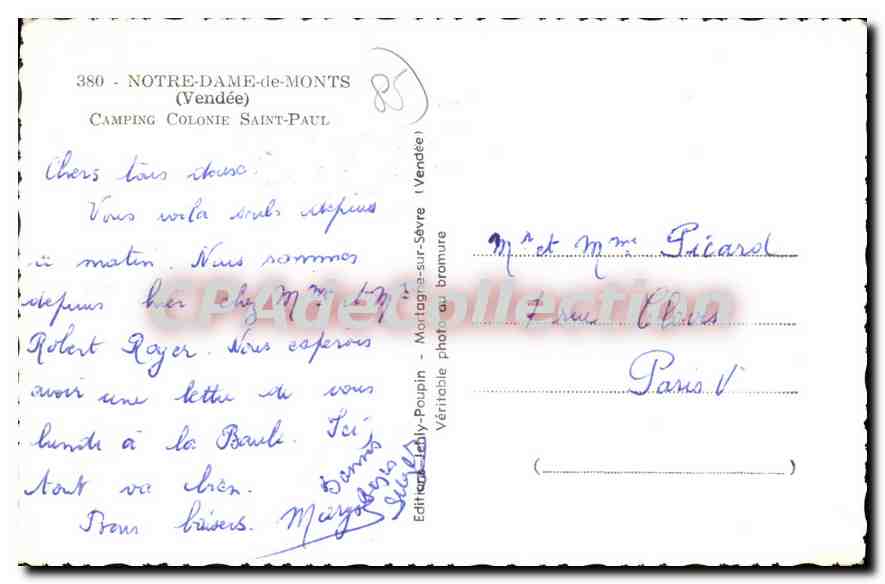 380 - NOTRE-DAME-de-MONTS
(Vendée)
CAMPING COLONIE SAINT-PAUL
85
Chers tous deux.
Vous voila seuls depuis
ce matin. Nous sommes
depuis hier chez Mme et Mr
Robert Royer. Nous espérons
avoir une lettre de vous
lundi à la Baule. Ici
tout va bien.
Bons baisers. Margo
Bons
Editions Jehly-Poupin - Mortagne-sur-Sèvre (Vendée)
Véritable photo au bromure
Mr et Mme Picard
7 rue Clovis
Paris V
CPAdeCollection